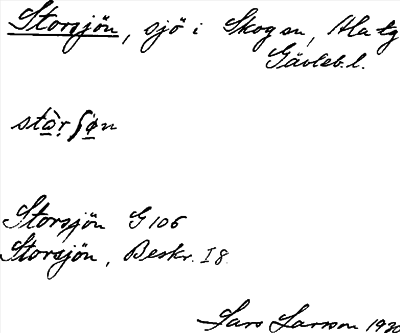 Storsjön, sjö i Skog sn, Ala tg
Gävleb. l.
stòr ʃøn
Storsjön G 106
Storsjön, Beskr. I 8.
Lars Larsson 1920